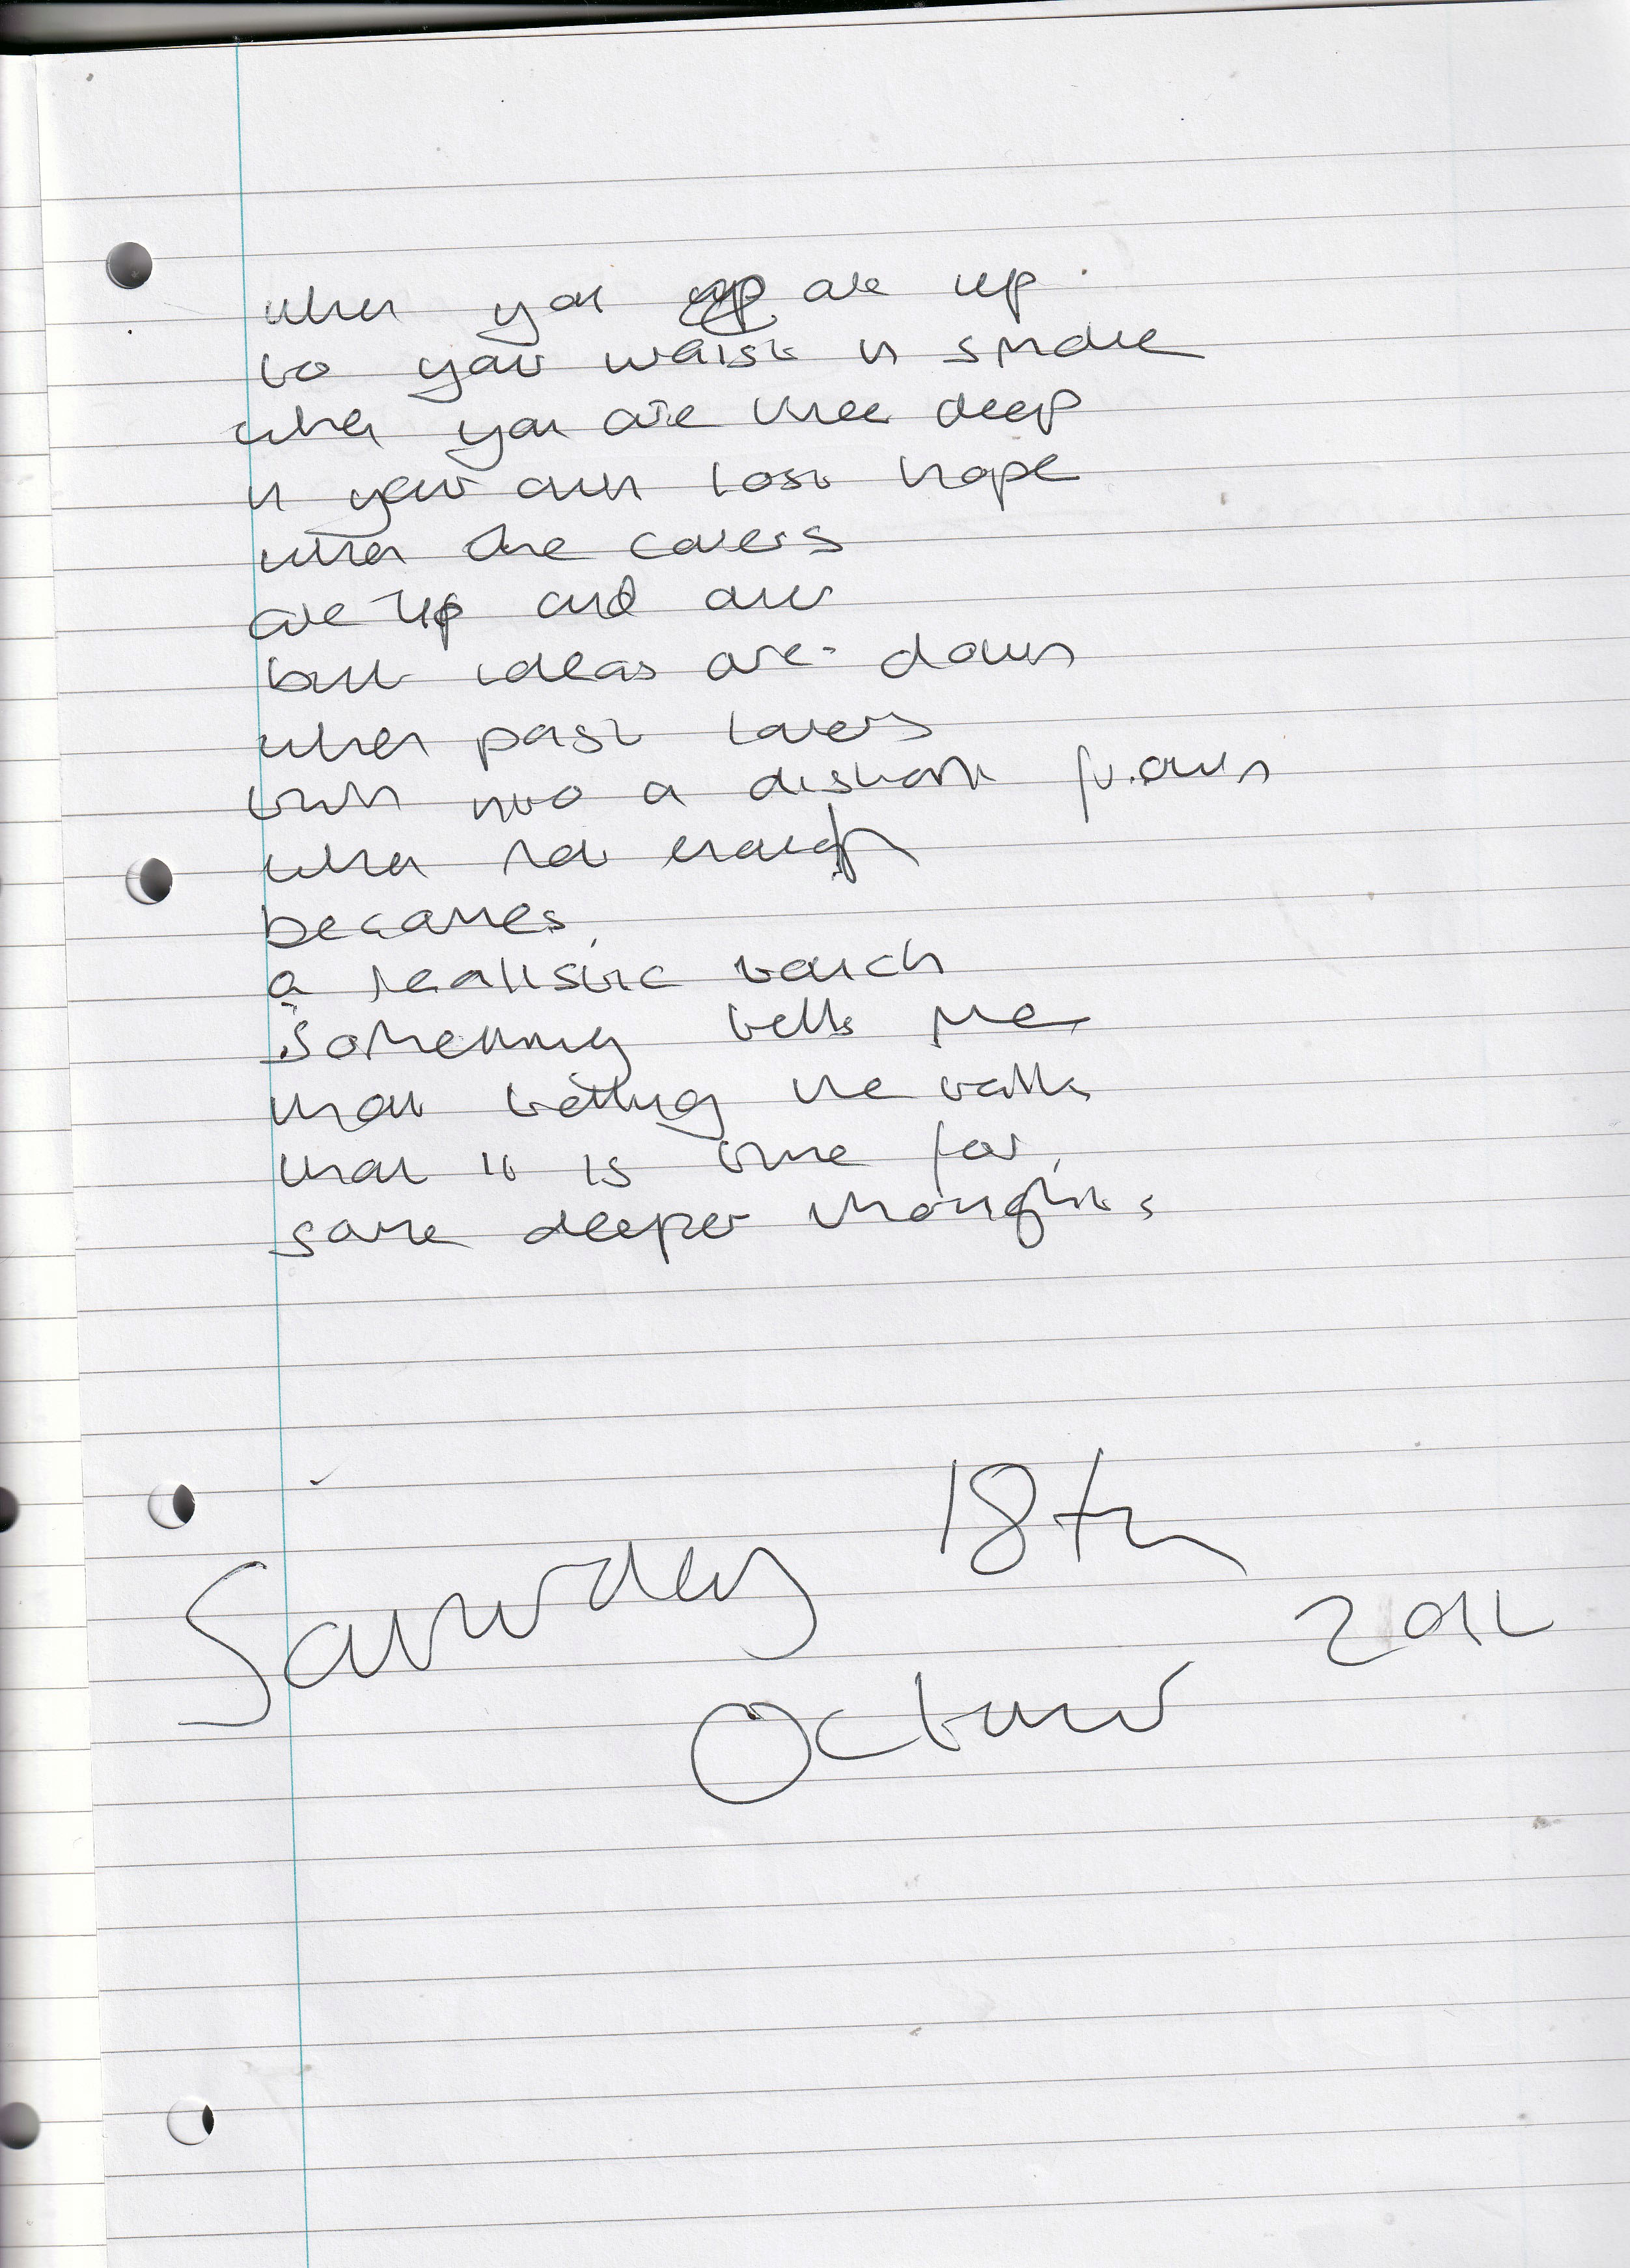 when you are up
to your waist in smoke
when you are knee deep
in your own lost hope
when the covers
are up and over
but ideas are down
when past lovers
turn into a distant frown
when not enough
becomes
a realistic touch
something tells me
that the walls
that it is time for
some deeper thoughts
18th
Saturday
2012
October